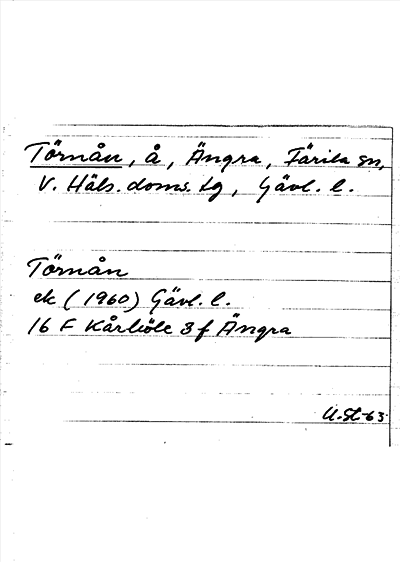 Törnån, å, Ängra, Färila sn,
V. Häls. doms. tg, Gävl. l.
Törnån
ek (1960) Gävl. l.
16 F Kårböle 3 f Ängra
U. St-63